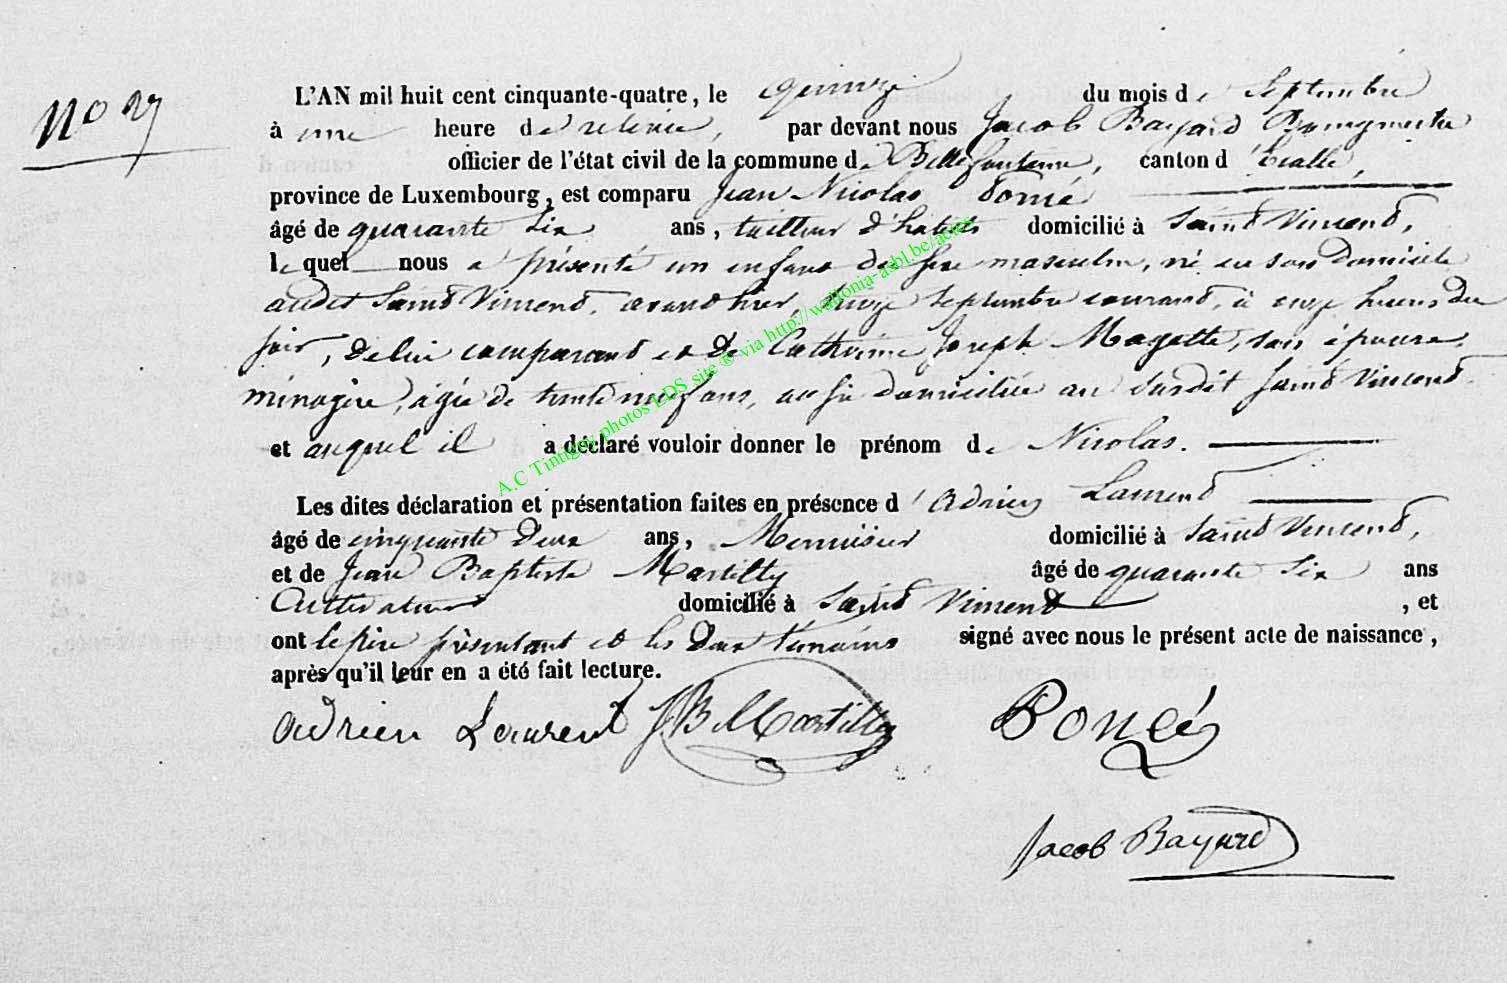 No 27
L'AN mil huit cent cinquante-quatre, le quinze du mois de Septembre
à une heure de relevée, par devant nous Jacob Bayard Bourgmestre
officier de l'état civil de la commune de Bellefontaine, canton d'Etalle,
province de Luxembourg, est comparu Jean Nicolas Poncé
âgé de quarante six ans, tailleur d'habits domicilié à Saint Vincent,
lequel nous a présenté un enfant du sexe masculin, né en son domicile
audit Saint Vincent, avant hier, treize septembre courant, à onze heures du
soir, de lui comparant et de Catherine Joseph Magette, son épouse,
ménagère, âgée de trente neuf ans, aussi domiciliée au susdit Saint Vincent
et auquel il a déclaré vouloir donner le prénom de Nicolas.
Les dites déclaration et présentation faites en présence d'Adrien Laurent
âgé de cinquante deux ans, Menuisier domicilié à Saint Vincent,
et de Jean Baptiste Martilly âgé de quarante six ans
Cultivateur domicilié à Saint Vincent , et
ont le père présentant et les deux témoins signé avec nous le présent acte de naissance,
après qu'il leur en a été fait lecture.
Adrien Laurent J B Martilly Poncé
Jacob Bayard
A.C Tintigny photos LDS site ® via http://wallonia-asbl.be/actes